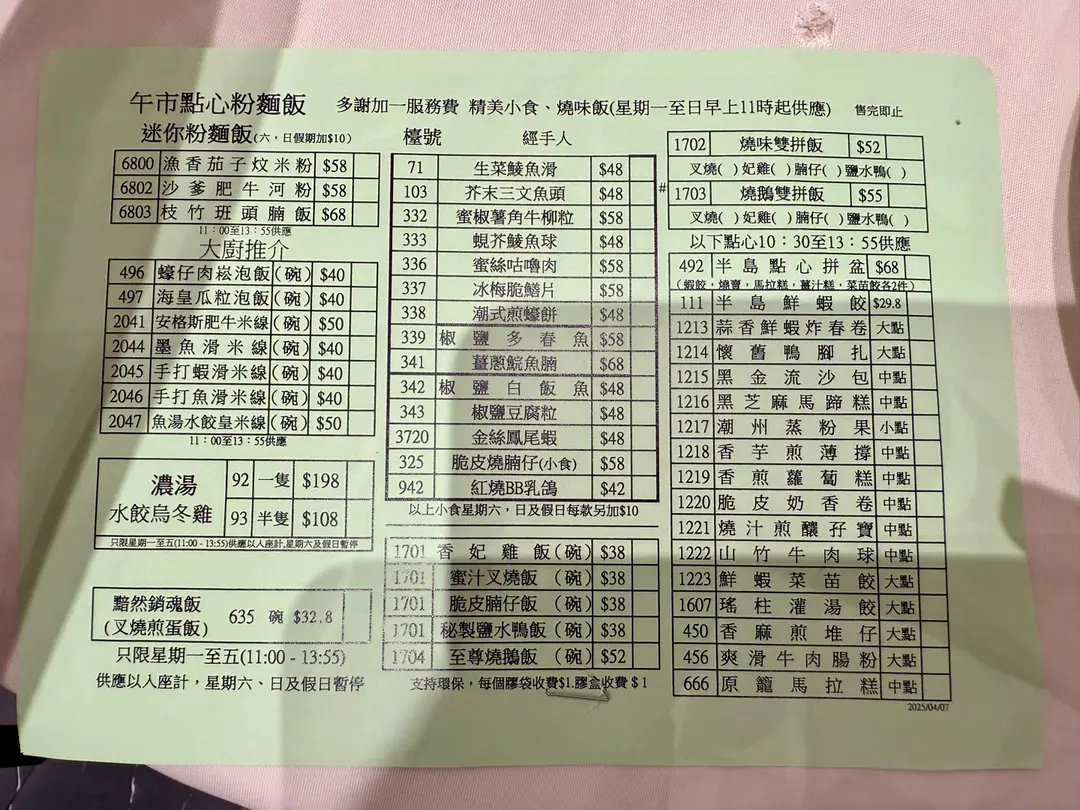 午市點心粉麵飯 多謝加一服務費 精美小食、燒味飯(星期一至日早上11時起供應) 售完即止
迷你粉麵飯(六，日假期加$10)
6800 漁香茄子炆米粉 $58
6802 沙爹肥牛河粉 $58
6803 枝竹班頭腩飯 $68
11：00至13：55供應
大廚推介
496 蠔仔肉崧泡飯(碗) $40
497 海皇瓜粒泡飯(碗) $40
2041 安格斯肥牛米線(碗) $50
2044 墨魚滑米線(碗) $40
2045 手打蝦滑米線(碗) $40
2046 手打魚滑米線(碗) $40
2047 魚湯水餃皇米線(碗) $50
11：00至13：55供應
濃湯
水餃烏冬雞
92 一隻 $198
93 半隻 $108
只限星期一至五(11:00 - 13:55)供應以人座計,星期六及假日暫停
黯然銷魂飯
(叉燒煎蛋飯)
635 碗 $32.8
只限星期一至五(11:00 - 13:55)
供應以人座計，星期六、日及假日暫停
檯號 經手人
71 生菜鯪魚滑 $48
103 芥末三文魚頭 $48
332 蜜椒薯角牛柳粒 $58
333 蜆芥鯪魚球 $48
336 蜜絲咕嚕肉 $58
337 冰梅脆鱔片 $58
338 潮式煎蠔餅 $48
339 椒鹽多春魚 $58
341 薑蔥鯇魚腩 $68
342 椒鹽白飯魚 $48
343 椒鹽豆腐粒 $48
3720 金絲鳳尾蝦 $48
325 脆皮燒腩仔(小食) $58
942 紅燒BB乳鴿 $42
以上小食星期六，日及假日每款另加$10
1701 香妃雞飯(碗) $38
1701 蜜汁叉燒飯 (碗) $38
1701 脆皮腩仔飯 (碗) $38
1701 秘製鹽水鴨飯(碗) $38
1704 至尊燒鵝飯 (碗) $52
支持環保，每個膠袋收費$1.膠盒收費＄1
1702 燒味雙拼飯 $52
叉燒( ) 妃雞( ) 腩仔( ) 鹽水鴨( )
# 1703 燒鵝雙拼飯 $55
叉燒( ) 妃雞( ) 腩仔( ) 鹽水鴨( )
以下點心10：30至13：55供應
492 半島點心拼盆 $68
(蝦餃，燒賣，馬拉糕，薑汁糕，菜苗餃各2件)
111 半島鮮蝦餃 $29.8
1213 蒜香鮮蝦炸春卷 大點
1214 懷舊鴨腳扎 大點
1215 黑金流沙包 中點
1216 黑芝麻馬蹄糕 中點
1217 潮州蒸粉果 小點
1218 香芋煎薄撐 中點
1219 香煎蘿蔔糕 中點
1220 脆皮奶香卷 中點
1221 燒汁煎釀孖寶 中點
1222 山竹牛肉球 中點
1223 鮮蝦菜苗餃 大點
1607 瑤柱灌湯餃 大點
450 香麻煎堆仔 大點
456 爽滑牛肉腸粉 大點
666 原籠馬拉糕 中點
2025/04/07